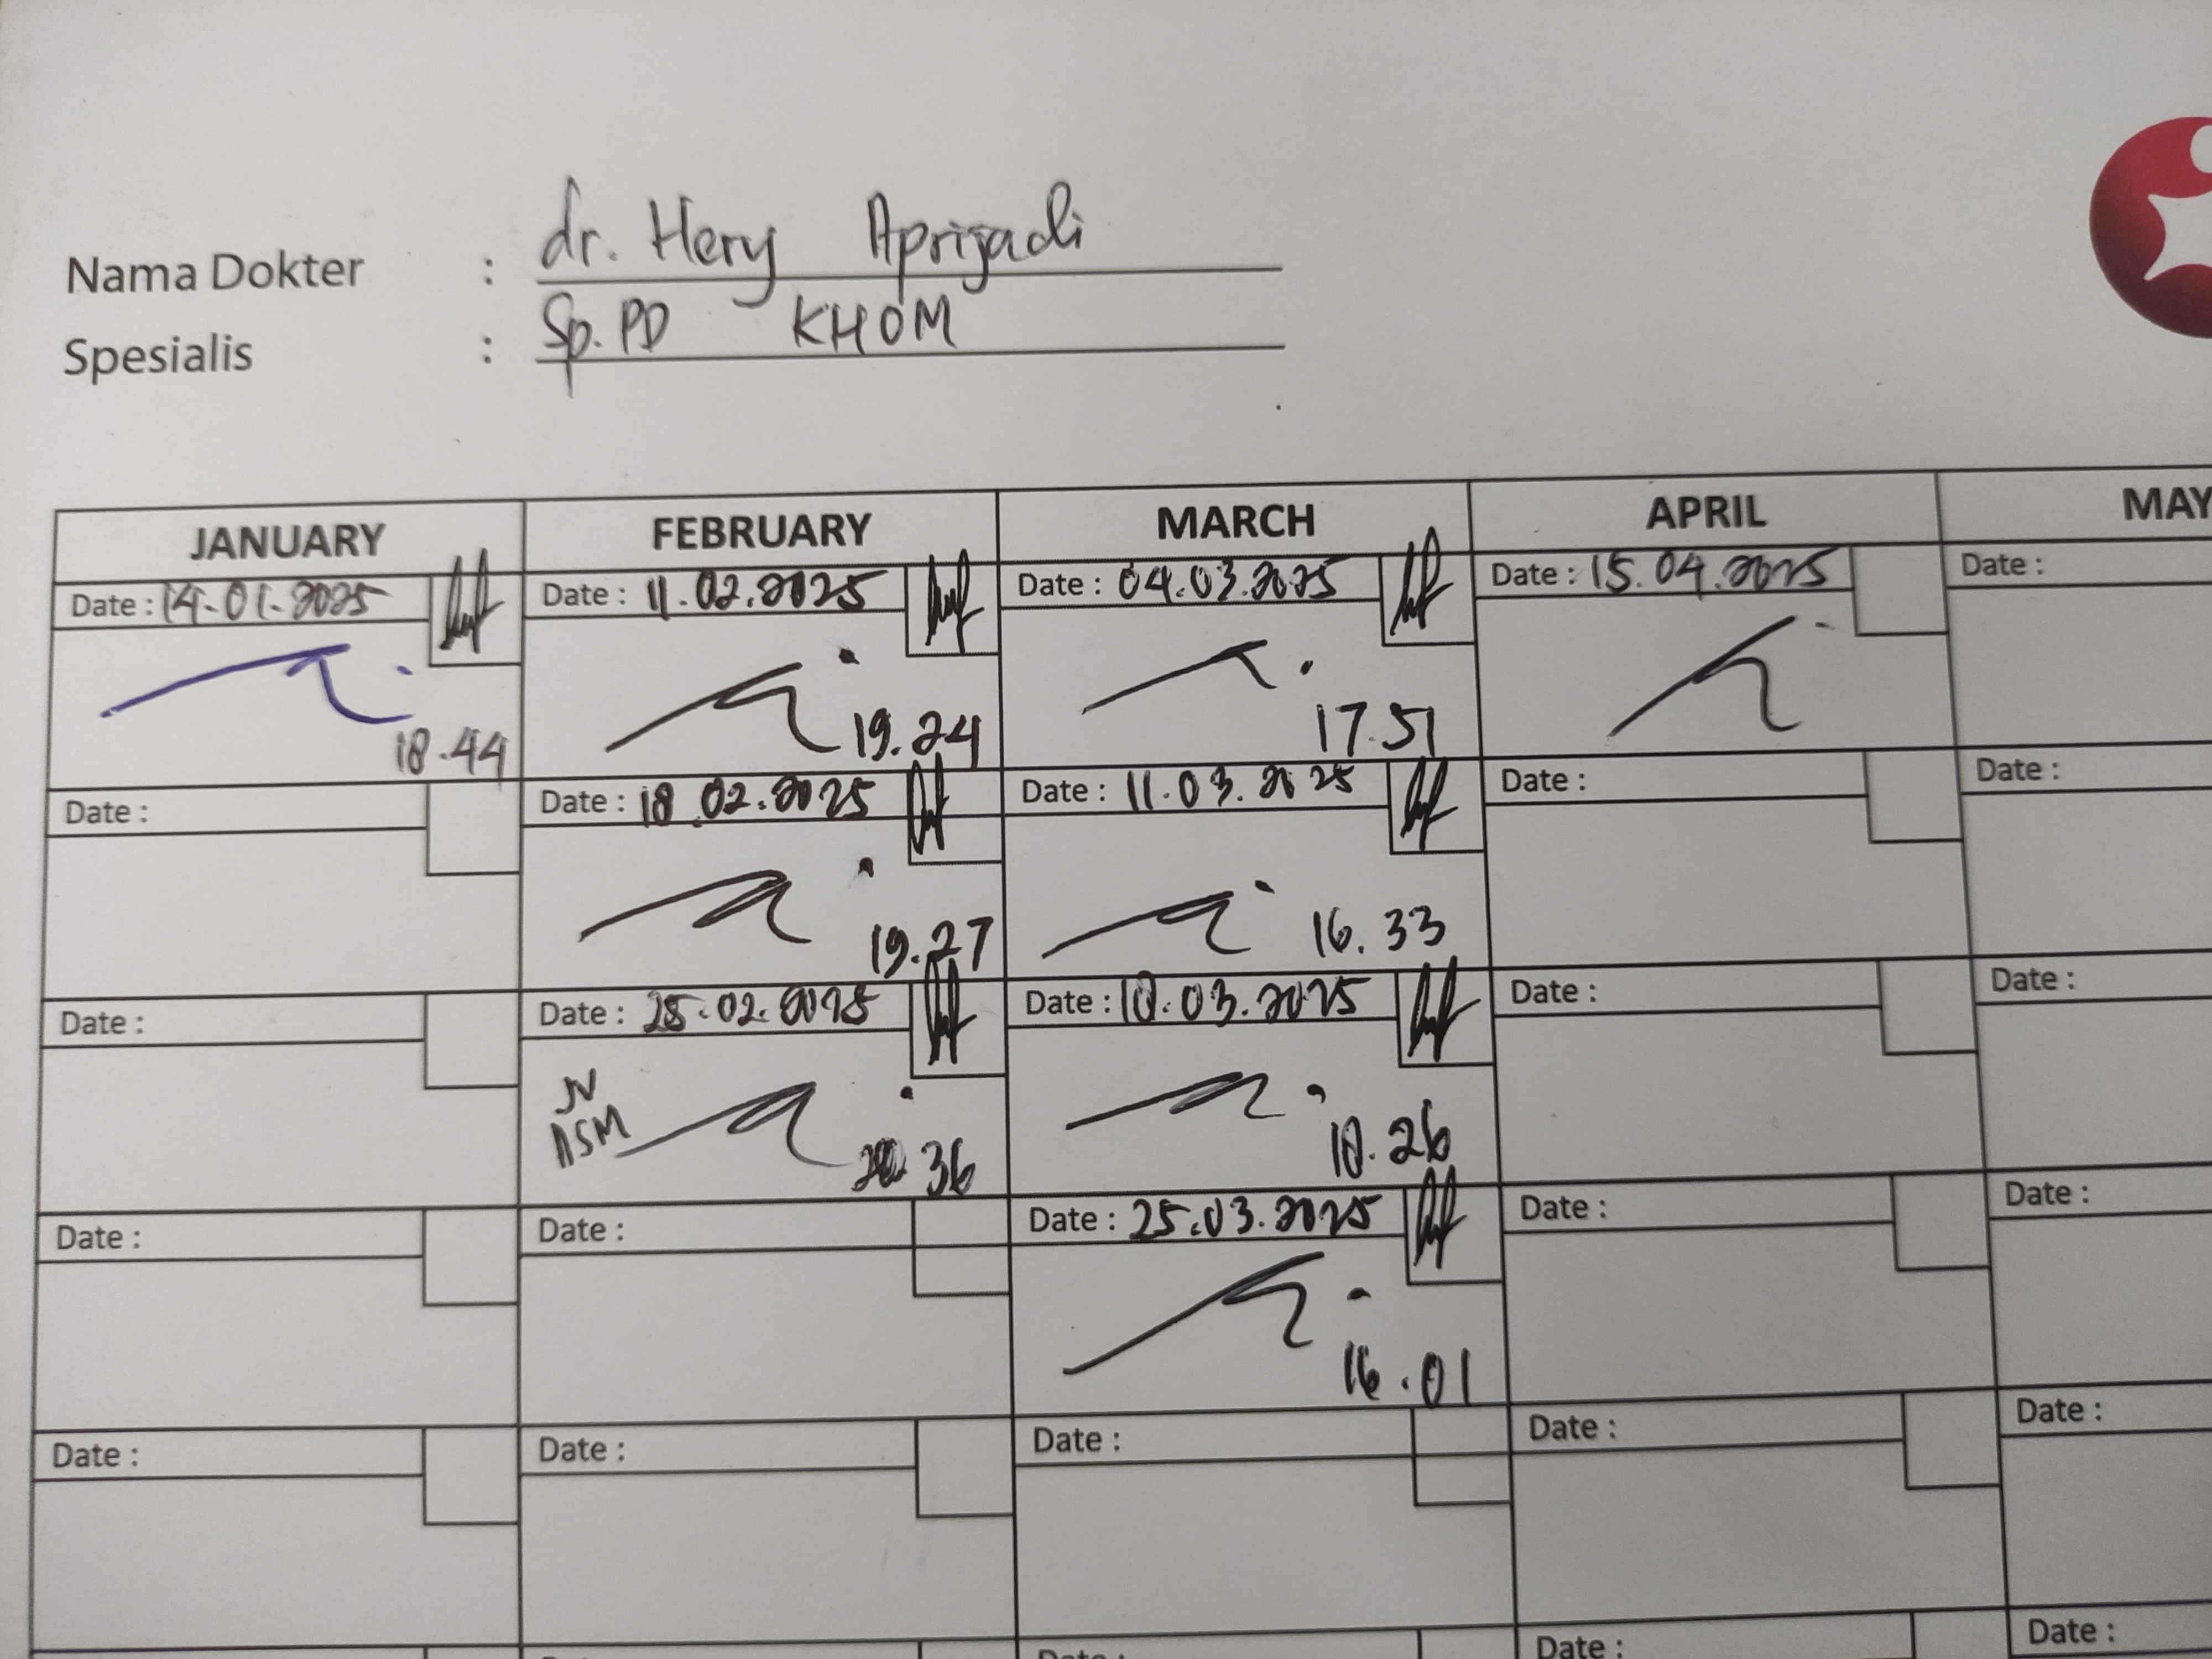 Nama Dokter : dr. Hery Aprijadi
Spesialis : Sp.PD KHOM
JANUARY FEBRUARY MARCH APRIL MAY
Date : 14-01-2025 Date : 11.02.2025 Date : 04.03.2025 Date : 15.04.2025 Date :
18.44 19.24 17.51
Date : Date : 18.02.2025 Date : 11.03.2025 Date : Date :
19.27 16.33
Date : Date : 25.02.2025 Date : 18.03.2025 Date : Date :
ASM 36 18.26
Date : Date : Date : 25.03.2025 Date : Date :
16.01
Date : Date : Date : Date : Date :
Date : Date : Date :